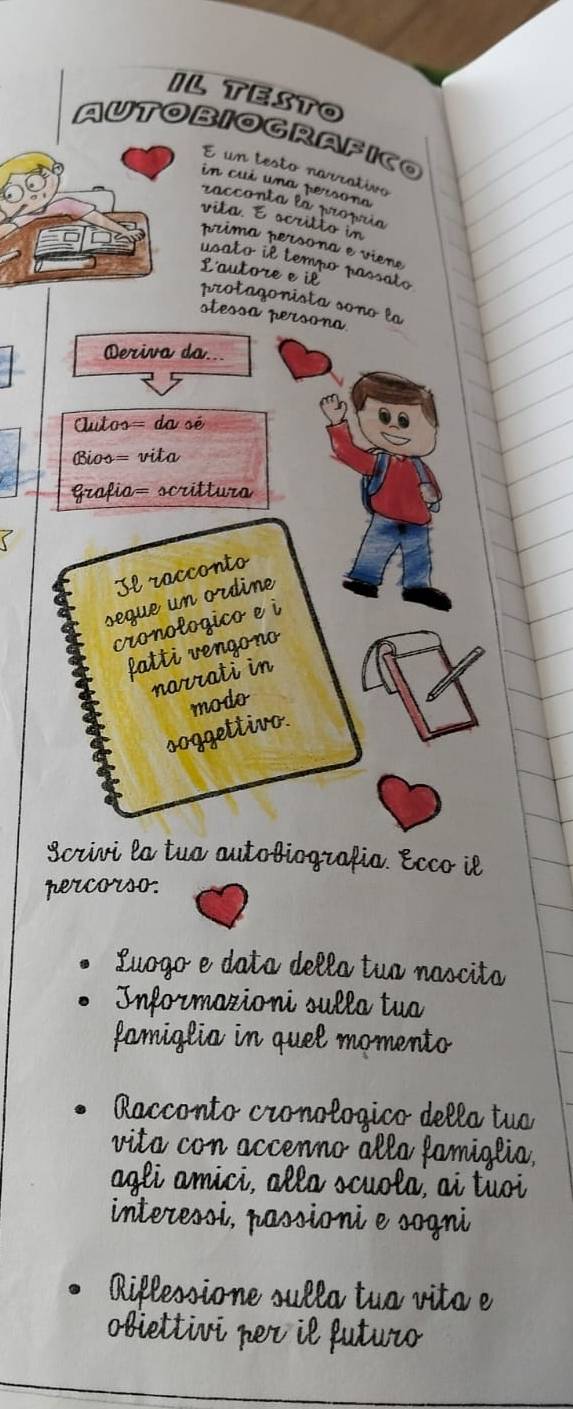 IL TESTO
AUTOBIOGRAFICO
È un testo narrativo
in cui una persona
racconta la propria
vita. È scritto in
prima persona e viene
usato il tempo passato.
L'autore e il
protagonista sono la
stessa persona.
Deriva da...
Autos= da sé
Bios= vita
Grafia= scrittura
Il racconto
segue un ordine
cronologico e i
fatti vengono
narrati in
modo
soggettivo.
Scrivi la tua autobiografia. Ecco il
percorso:
• Luogo e data della tua nascita
• Informazioni sulla tua
famiglia in quel momento
• Racconto cronologico della tua
vita con accenno alla famiglia,
agli amici, alla scuola, ai tuoi
interessi, passioni e sogni
• Riflessione sulla tua vita e
obiettivi per il futuro